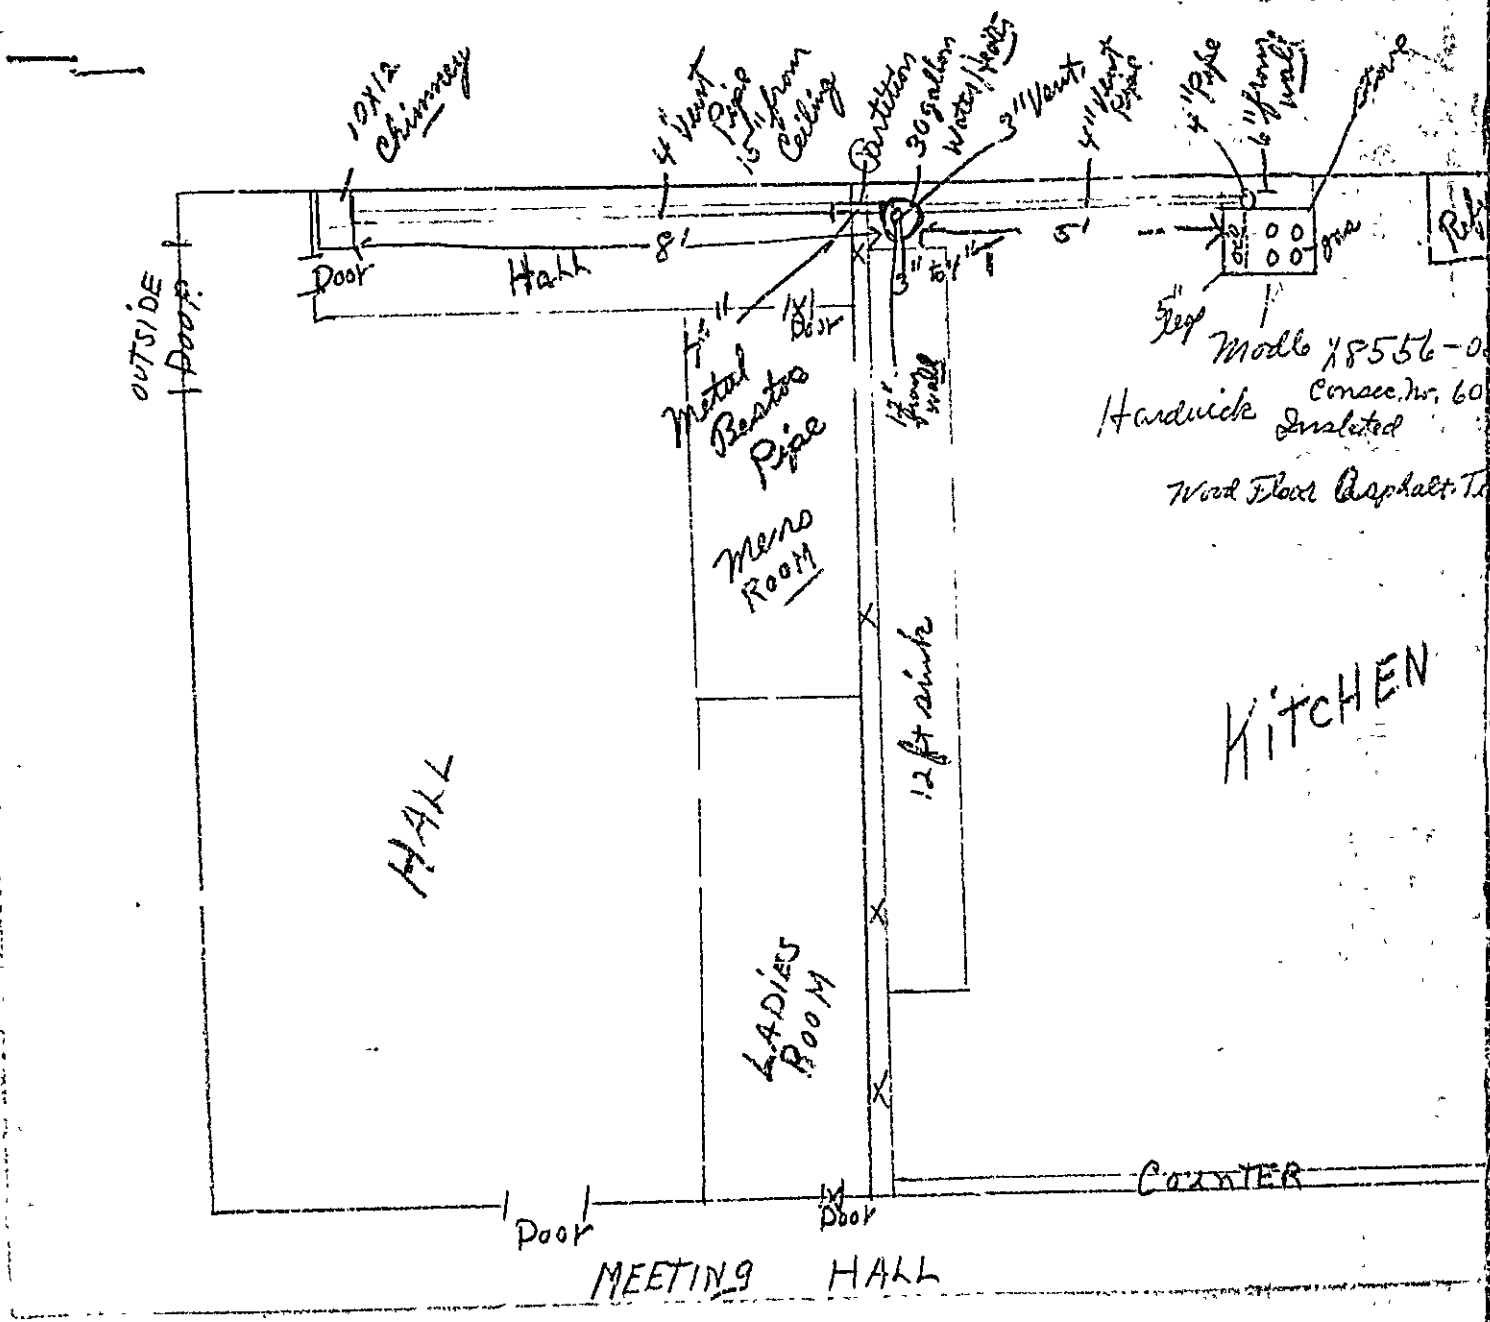 10X12
Chimney
4" Vent
Pipe
15" from
Ceiling
Partition
30 gallon
Water Heater
3" Vent
4" Vent
Pipe
4" Pipe
6" from
wall
Door
Hall
8'
5'
3" to 4"
gas
Ref
OUTSIDE
Door
Door
7"
Metal
Bestos
Pipe
12"
from
wall
5"
legs
Modle X8556-0
Hardwick
Consec. no. 60
Inslated
Wood Floor Asphalt T
Mens
ROOM
12 ft sink
KiTCHEN
HALL
LADiES
ROOM
COUNTER
Door
Door
MEETING HALL